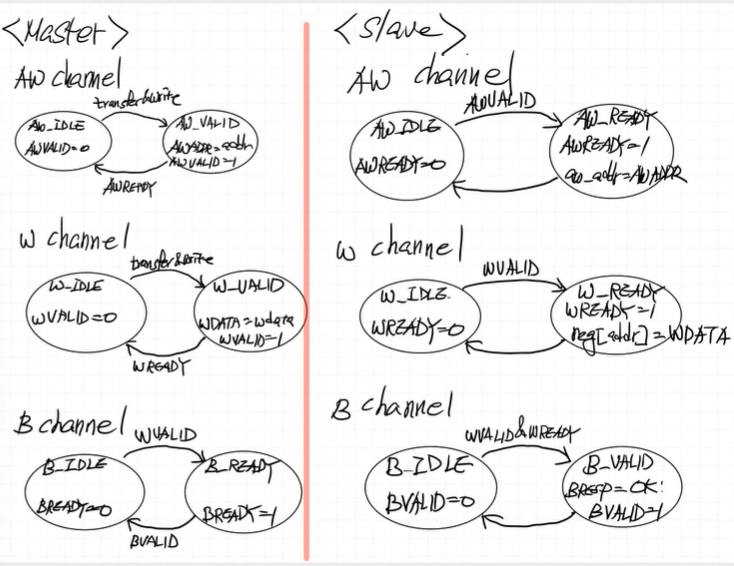 <Master>
AW channel
transfer&write
AW_IDLE
AWVALID=0
AW_VALID
AWADDR=addr
AWVALID=1
AWREADY
W channel
transfer&write
W_IDLE
WVALID=0
W_VALID
WDATA=wdata
WVALID=1
WREADY
B channel
WVALID
B_IDLE
BREADY=0
B_READY
BREADY=1
BVALID
<Slave>
AW channel
AWVALID
AW_IDLE
AWREADY=0
AW_READY
AWREADY=1
aw_addr=AWADDR
W channel
WVALID
W_IDLE.
WREADY=0
W_READY
WREADY=1
reg[addr]=WDATA
B channel
WVALID&WREADY
B_IDLE
BVALID=0
B_VALID
BRESP=OK:
BVALID=1